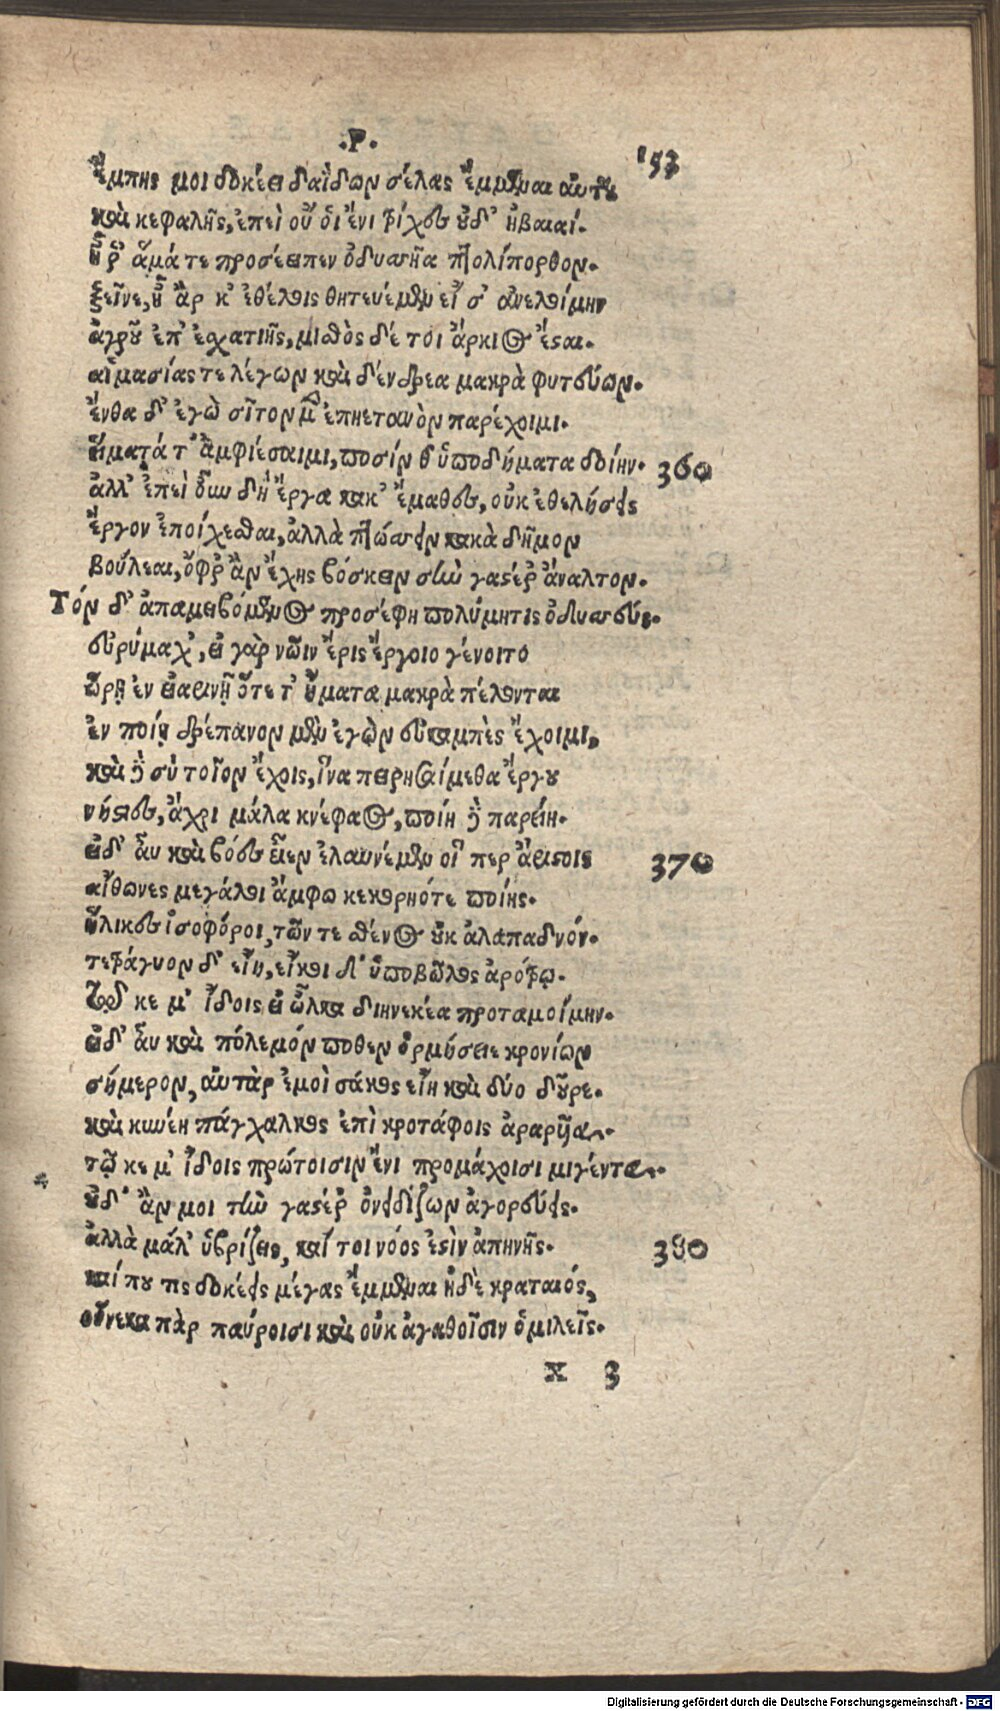 .Ρ.
153
ἔμπης μοι δοκέει δαΐδων σέλας ἔμμεναι αὐτοῦ
καὶ κεφαλῆς, ἐπεὶ οὔ οἱ ἔνι τρίχες οὐδ' ἠβαιαί.
ἦ ῥ' ἅμά τε προσέειπεν ὀδυσσῆα πτολίπορθον.
ξεῖνε, ἦ ἄρ κ' ἐθέλοις θητευέμεν εἴ σ' ἀνελοίμην
ἀγροῦ ἐπ' ἐσχατιῆς, μισθὸς δέ τοι ἄρκιος ἔσται.
αἱμασίας τε λέγων καὶ δένδρεα μακρὰ φυτεύων.
ἔνθα δ' ἐγὼ σῖτον μὲν ἐπηετανὸν παρέχοιμι.
εἵματά τ' ἀμφιέσαιμι, ποσίν θ' ὑποδήματα δοίην.
360
ἀλλ' ἐπεὶ οὖν δὴ ἔργα κακ' ἔμαθες, οὐκ ἐθελήσεις
ἔργον ἐποίχεσθαι, ἀλλὰ πτώσσειν κακὰ δῆμον
βούλεαι, ὄφρ' ἂν ἔχης βόσκειν σὴν γαστέρ' ἄναλτον.
Τόν δ' ἀπαμειβόμενος προσέφη πολύμητις ὀδυσσεύς.
εὐρύμαχ', εἰ γὰρ νῶιν ἔρις ἔργοιο γένοιτο
ὥρῃ ἐν εἰαρινῇ ὅτε τ' ἤματα μακρὰ πέλονται
ἐν ποίῃ δρέπανον μὲν ἐγὼν εὐκαμπὲς ἔχοιμι,
καὶ δὲ σὺ τοῖον ἔχοις, ἵνα πειρησαίμεθα ἔργου
νήστιες, ἄχρι μάλα κνέφαος, ποίη δὲ παρείη.
εἰ δ' αὖ καὶ βόες εἶεν ἐλαυνέμεν οἵ περ ἄριστοι
370
αἴθωνες μεγάλοι ἄμφω κεκορηότε ποίης.
ἥλικες ἰσοφόροι, τῶν τε σθένος οὐκ ἀλαπαδνόν.
τετράγυον δ' εἴη, εἴκοι δ' ὑπο βῶλος ἀρότρῳ.
τῷ κε μ' ἴδοις εἰ ὦλκα διηνεκέα προταμοίμην.
εἰ δ' αὖ καὶ πόλεμόν ποθεν ὁρμήσειε κρονίων
σήμερον, αὐτὰρ ἐμοὶ σάκος εἴη καὶ δύο δοῦρε.
καὶ κυνέη πάγχαλκος ἐπὶ κροτάφοις ἀραρυῖα.
τῷ κε μ' ἴδοις πρώτοισιν ἔνι προμάχοισι μιγέντα.
οὐδ' ἄν μοι τὴν γαστέρ' ὀνειδίζων ἀγορεύεις.
ἀλλὰ μάλ' ὑβρίζεις, καί τοι νόος ἐστὶν ἀπηνής.
380
καί που τις δοκέεις μέγας ἔμμεναι ἠδὲ κραταιός,
οὕνεκα πὰρ παύροισι καὶ οὐκ ἀγαθοῖσιν ὁμιλεῖς.
X 3
Digitalisierung gefördert durch die Deutsche Forschungsgemeinschaft - DFG